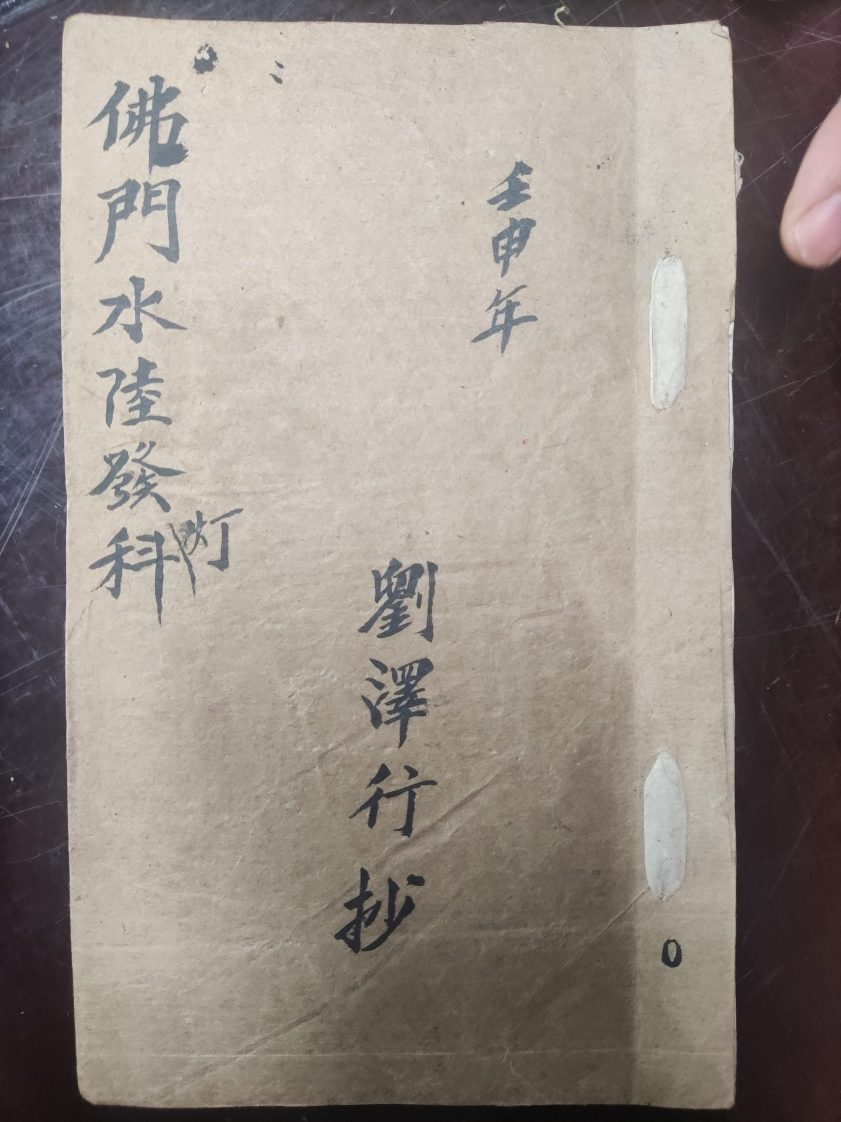 壬申年
劉澤行抄
佛門水陸發灯科
0